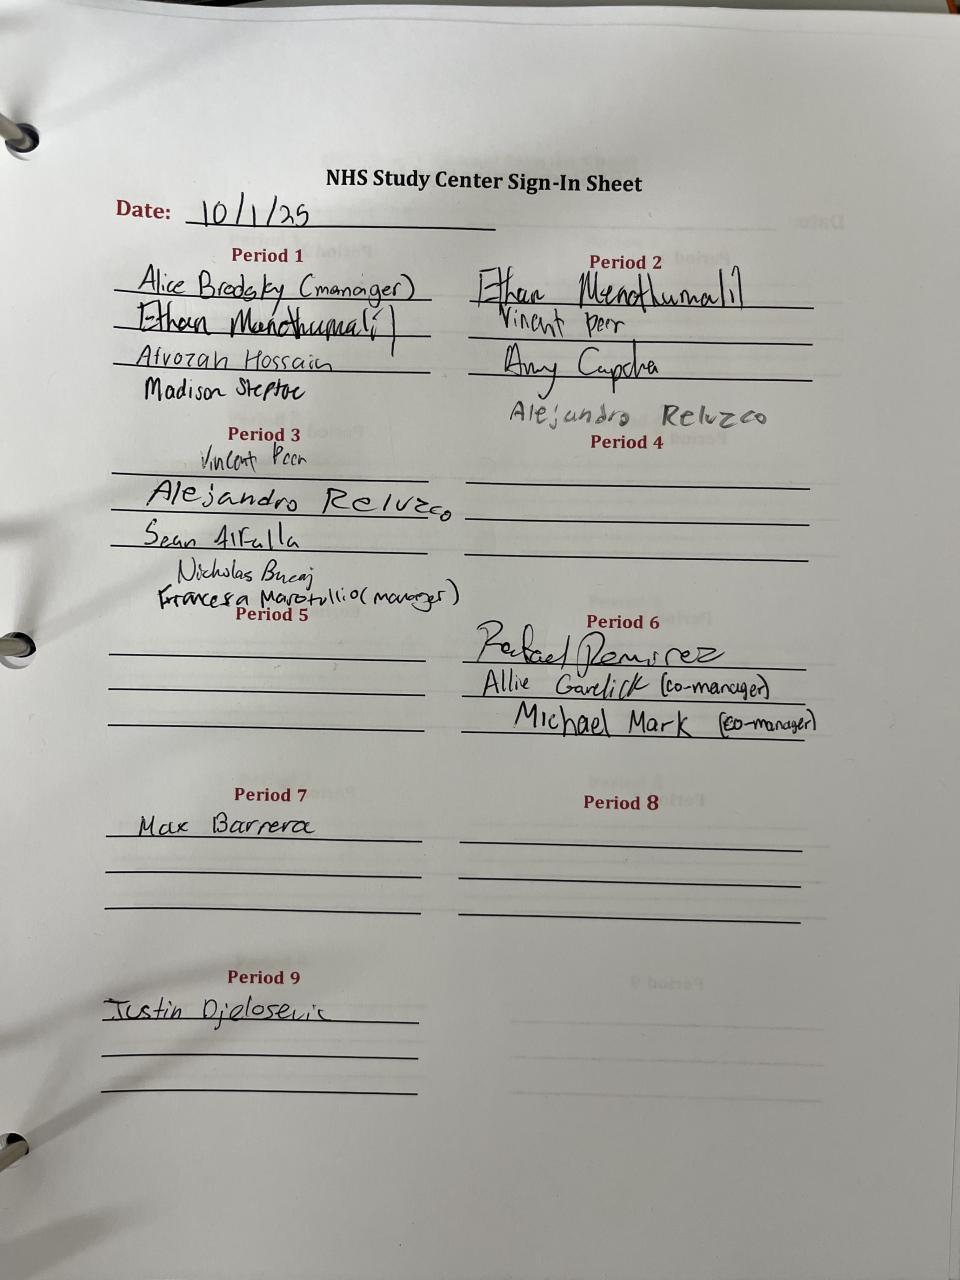 NHS Study Center Sign-In Sheet
Date: 10/1/25
Period 1
Alice Brodsky (manager)
Ethan Manothumalil
Afrozah Hossain
Madison Steptoe
Period 2
Ethan Menothumalil
Vincent Peer
Amy Capcha
Alejandro Reluzco
Period 3
Vincent Peer
Alejandro Reluzco
Sean Alfalla
Nicholas Bucaj
Francesa Marotullio (manager)
Period 4
Period 5
Period 6
Rafael Remirez
Allie Garelick (co-manager)
Michael Mark (co-manager)
Period 7
Max Barrera
Period 8
Period 9
Justin Djelosevic